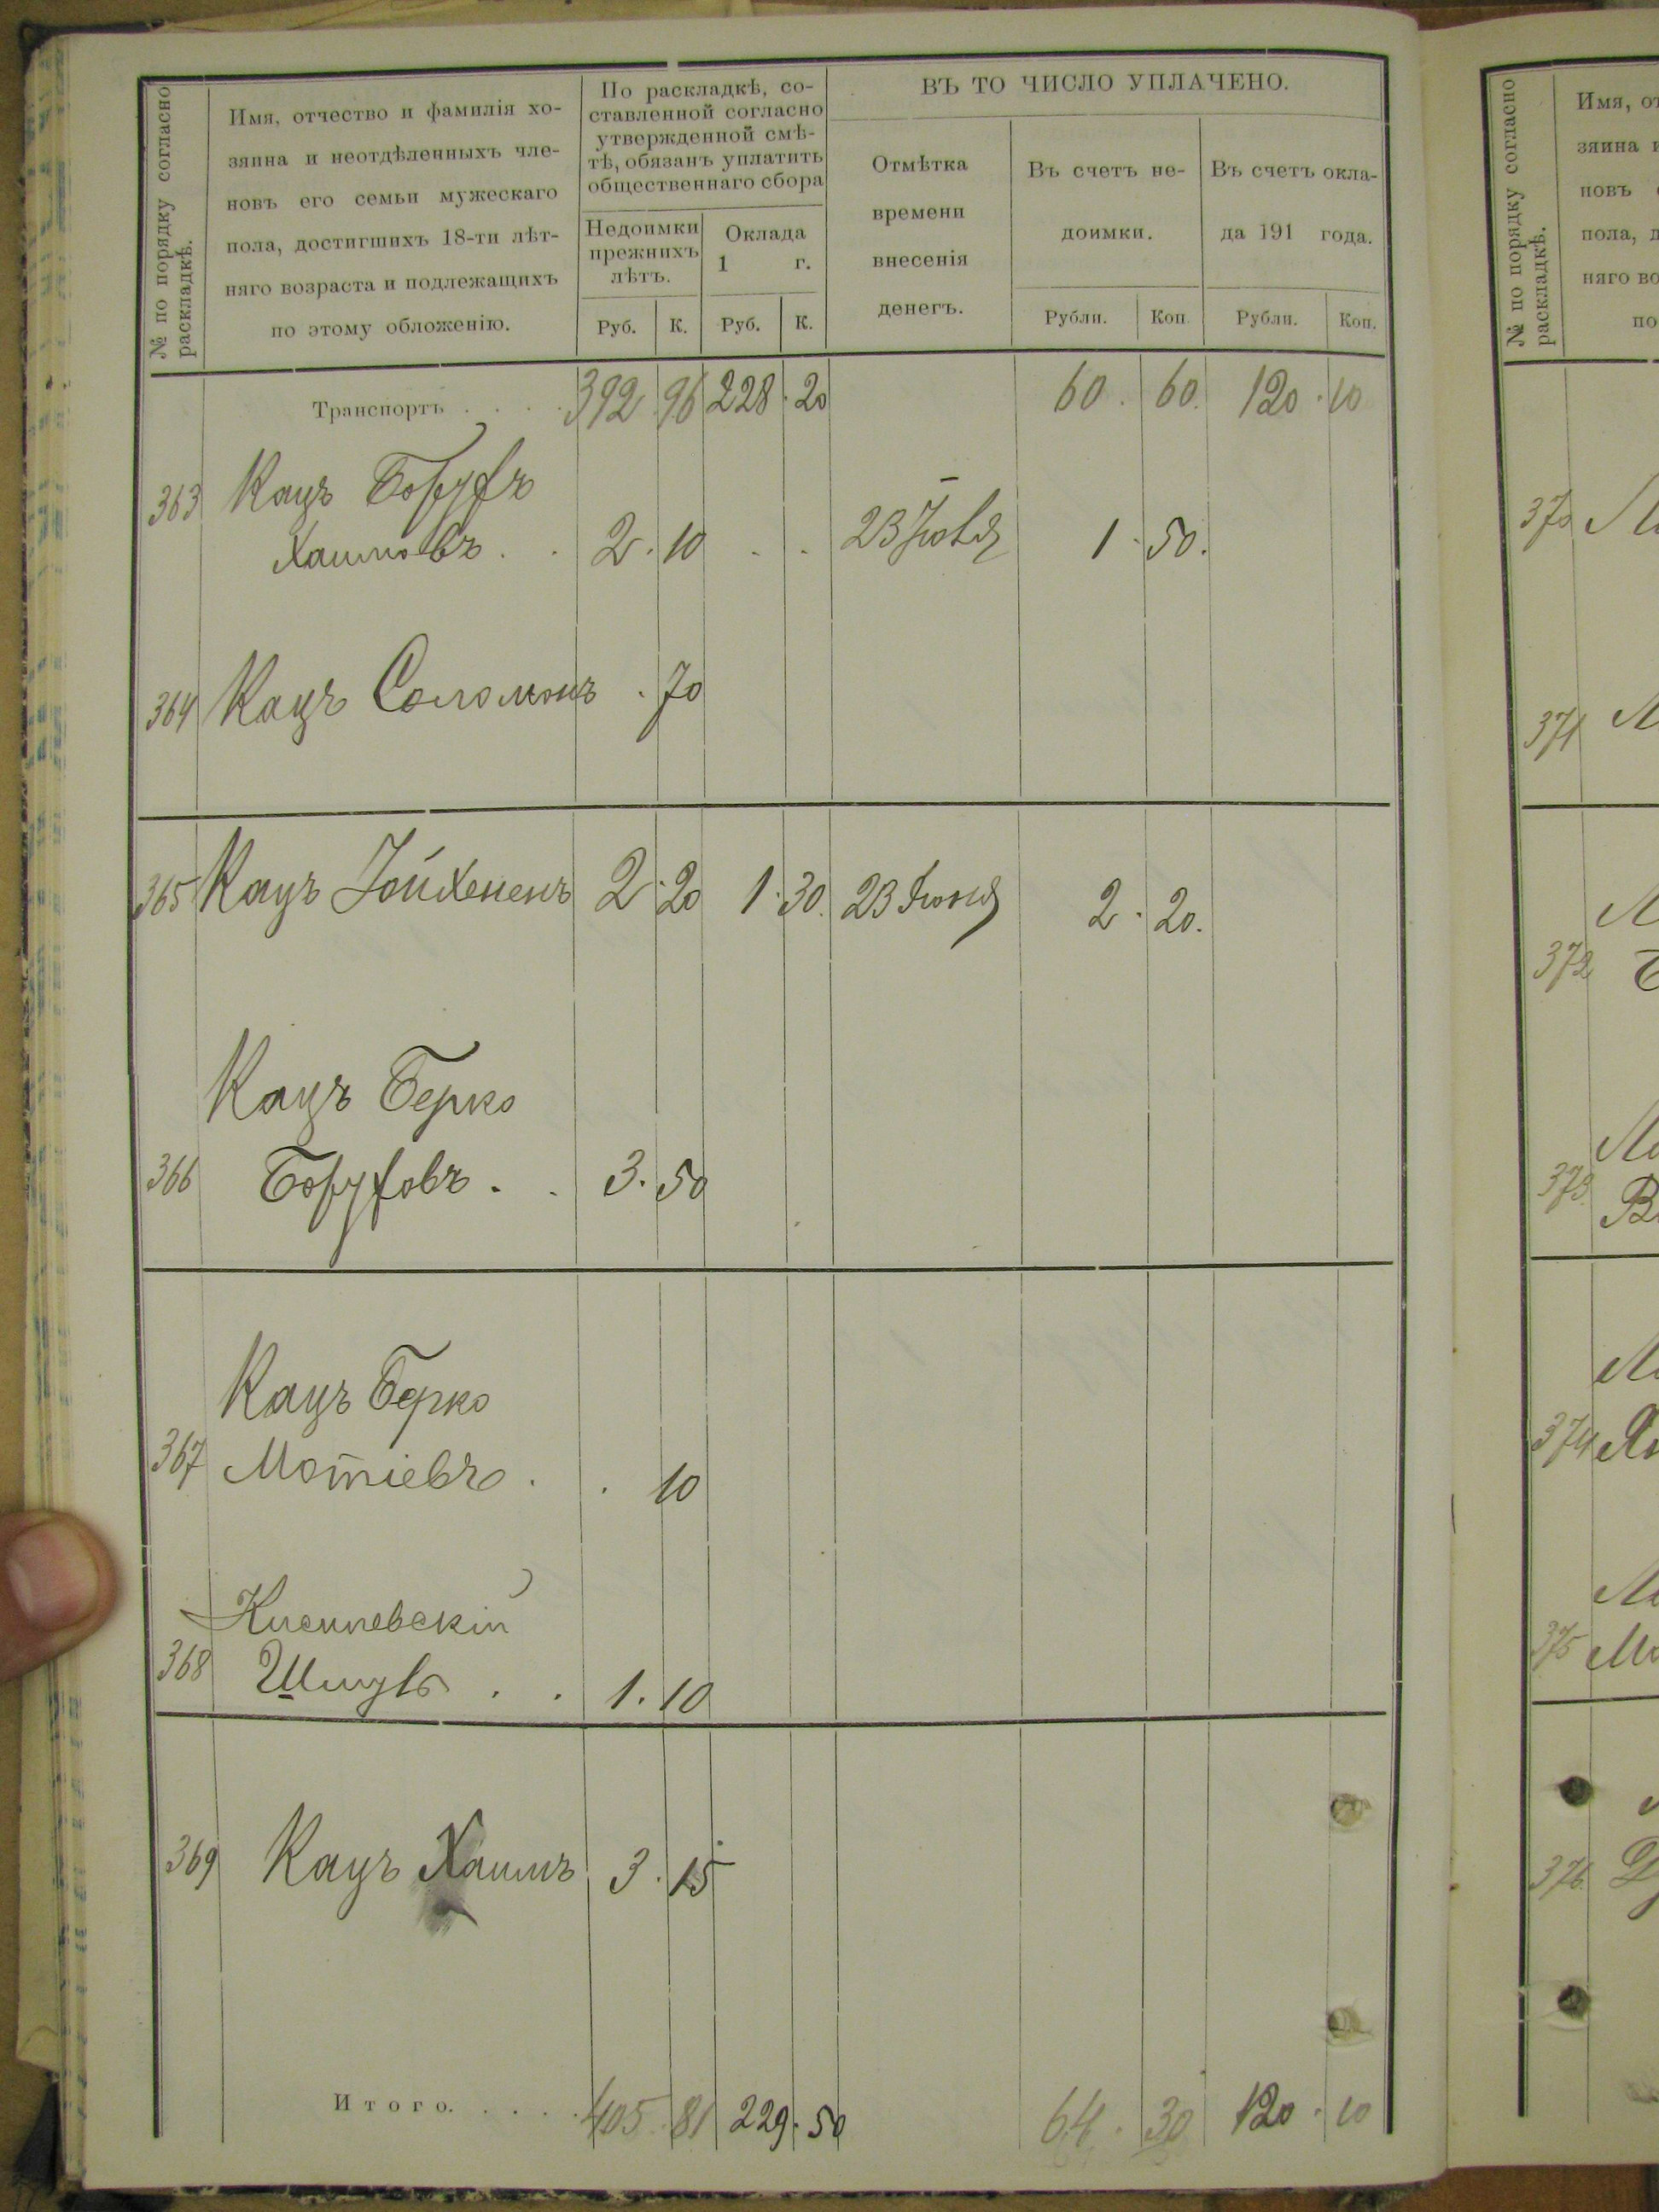 № по порядку согласно раскладкѣ.
Имя, отчество и фамилія хо-
зяина и неотдѣленныхъ чле-
новъ его семьи мужескаго
пола, достигшихъ 18-ти лѣт-
няго возраста и подлежащихъ
по этому обложенію.
По раскладкѣ, со-
ставленной согласно
утвержденной смѣ-
тѣ, обязанъ уплатить
общественнаго сбора
Недоимки
прежнихъ
лѣтъ.
Оклада
1 г.
Руб. К. Руб. К.
ВЪ ТО ЧИСЛО УПЛАЧЕНО.
Отмѣтка
времени
внесенія
денегъ.
Въ счетъ не-
доимки.
Въ счетъ окла-
да 191 года.
Рубли. Коп. Рубли. Коп.
Транспортъ . . . . 392 96 228 . 20 60 . 60. 120 . 10
363 Кацъ Борухъ
Хаимовъ . . 2 . 10 . . 23 Іюня 1 . 50.
364 Кацъ Соломонъ . 70
365 Кацъ Іойхененъ 2 . 20 1 . 30. 23 Іюня 2 . 20.
Кацъ Берко
366 Боруховъ . . 3 . 50
Кацъ Берко
367 Мотіевъ . . 10
Кисилевскій
368 Шмуль . . 1 . 10
369 Кацъ Хаимъ 3 . 15
Итого. . . . . 405 . 81 229 . 50 64 . 30 120 . 10
№ по порядку согласно раскладкѣ.
Имя, от
зяина и
новъ
пола, д
няго во
по
370
371
372
373
374
375
376